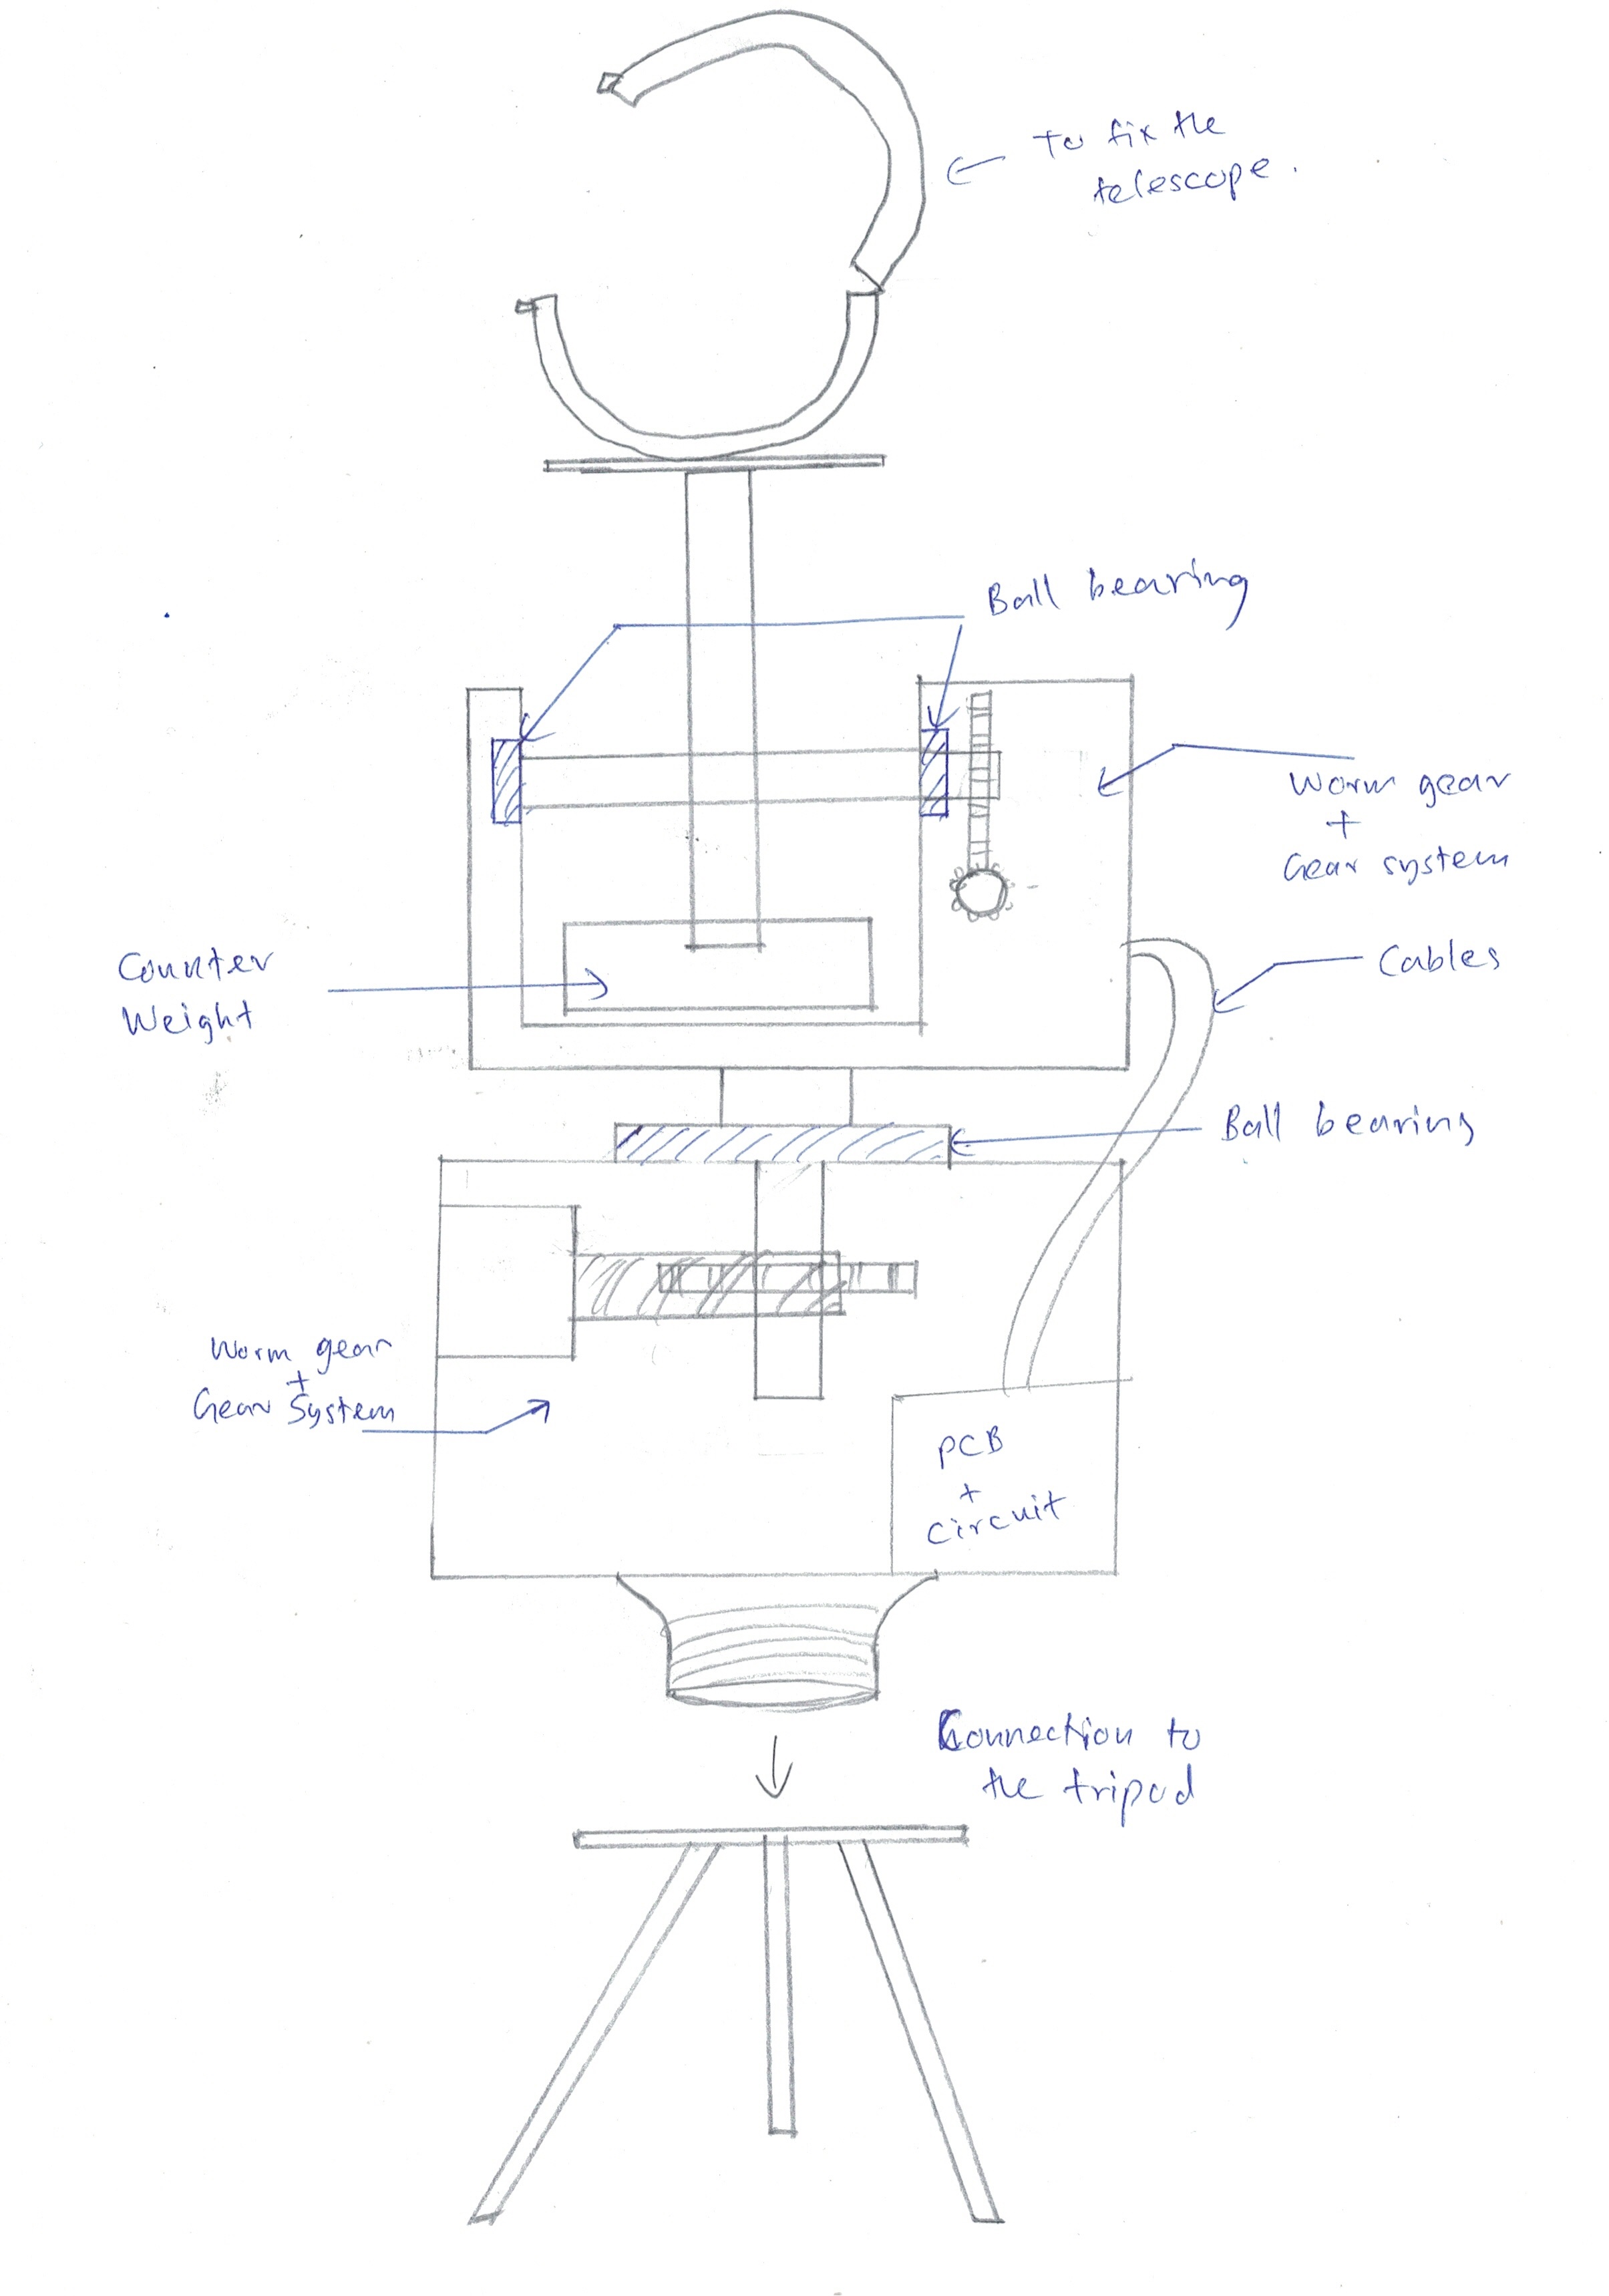 To fix the
telescope.
Ball bearing
Worm gear
+
Gear system
Counter
Weight
Cables
Ball bearing
Worm gear
+
Gear System
PCB
+
Circuit
Connection to
the tripod